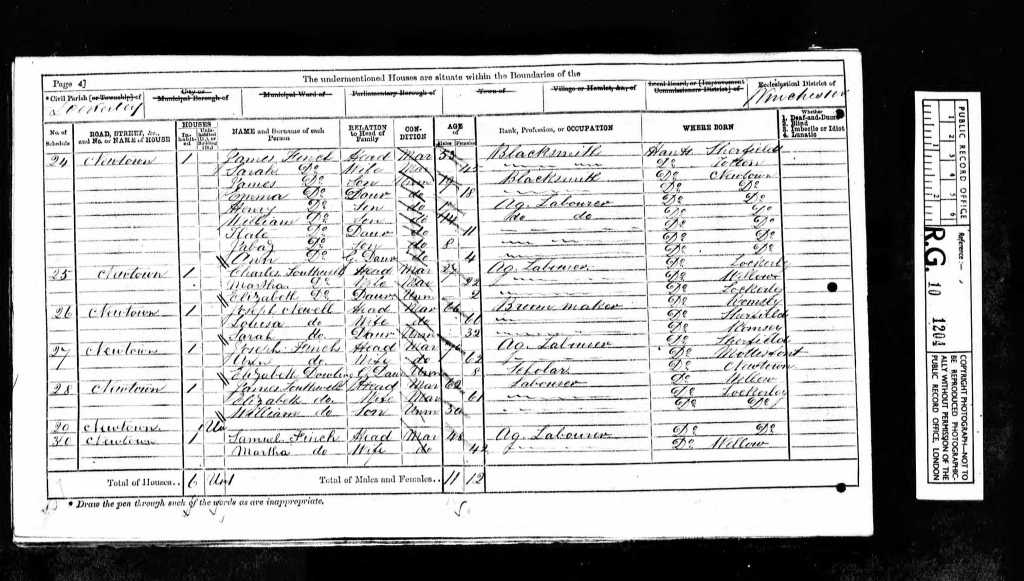 The undermentioned Houses are situate within the Boundaries of the
Page 4
* Civil Parish [or Township] of
City or Municipal Borough of
Municipal Ward of
Parliamentary Borough of
Town of
Village or Hamlet, &c., of
Local Board, or [Improvement Commissioners District] of
Ecclesiastical District of
Lockerley
Winchester
No. of Schedule
ROAD, STREET, &c., and No. or NAME of HOUSE
HOUSES
In-habit-ed
NAME and Surname of each Person
RELATION to Head of Family
CON-DITION
AGE of
Males
Females
Rank, Profession, or OCCUPATION
WHERE BORN
Whether
1. Deaf-and-Dumb
2. Blind
3. Imbecile or Idiot
4. Lunatic
24 Newtown 1 James Finch Head Mar 53 Blacksmith Hants Sherfield
Sarah Do Wife Mar Do
James Do Son Unm 19 Blacksmith Do Newtown
Emma Do Daur do 18 Do Do
Henry Do Son do Ag. Labourer Do Do
William Do Son do 14 do do Do Do
Kate Do Daur do 11 Do Do
Do Son do 8 Do Do
Ann Do G. Daur do 4 Do Lockerly
25 Newtown 1 Charles Southwell Head Mar 27 Ag. Labourer Do Wellow
Martha Do Wife Mar 22 Do Lockerly
Elizabeth Do Daur Unm 2 Do
26 Newtown 1 Joseph Newell Head Mar 66 Broom Maker Do Sherfield
Louisa do Wife do Do Romsey
Sarah do Daur Unm 32 Do Sherfield
27 Newtown 1 Joseph Finch Head Mar Ag. Labourer Do Mottesfont
do Wife do 62 Do Newtown
Elizabeth Dowling G. Daur Unm 8 Scholar Do Wellow
28 Newtown 1 James Southwell Head Mar 62 Labourer Do Lockerley
Elizabeth do Wife Mar 61 Do Do
William do Son Unm 30
Newtown 1 Un Do Do
30 Newtown 1 Samuel Finch Head Mar Ag. Labourer Do Wellow
Martha do Wife do 42
Total of Houses.. 6 Un 1
Total of Males and Females.. 11 12
* Draw the pen through such of the words as are inappropriate.
PUBLIC RECORD OFFICE
1 2 3 4 5 6
Reference :-
R.G. 10 1204
COPYRIGHT PHOTOGRAPH—NOT TO BE REPRODUCED PHOTOGRAPHICALLY WITHOUT PERMISSION OF THE PUBLIC RECORD OFFICE, LONDON